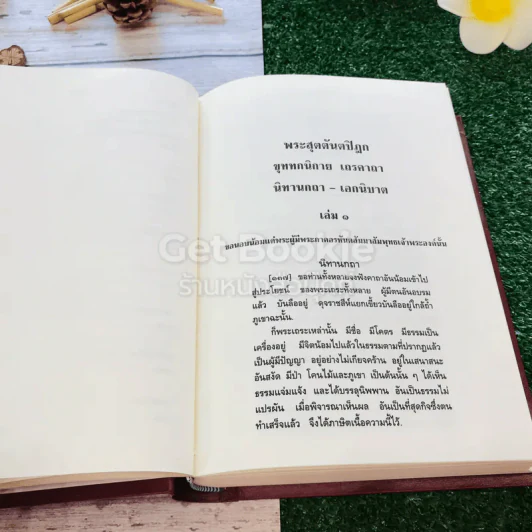 พระสุตตันตปิฎก
ขุททกนิกาย เถรคาถา
นิทานกถา – เอกนิบาต
เล่ม ๑
ขอนอบน้อมแด่พระผู้มีพระภาคอรหันตสัมมาสัมพุทธเจ้าพระองค์นั้น
Get Bookie
นิทานกถา
ร้านหนังสือ
[๑๓๗] ขอท่านทั้งหลายจงฟังคาถาอันน้อมเข้าไป
สู่ประโยชน์ ของพระเถระทั้งหลาย ผู้มีตนอันอบรม
แล้ว บันลืออยู่ ดุจราชสีห์แยกเขี้ยวบันลืออยู่ใกล้ถ้ำ
ภูเขาฉะนั้น.
ก็พระเถระเหล่านั้น มีชื่อ มีโคตร มีธรรมเป็น
เครื่องอยู่ มีจิตน้อมไปแล้วในธรรมตามที่ปรากฏแล้ว
เป็นผู้มีปัญญา อยู่อย่างไม่เกียจคร้าน อยู่ในเสนาสนะ
อันสงัด มีป่า โคนไม้และภูเขา เป็นต้นนั้น ๆ ได้เห็น
ธรรมแจ่มแจ้ง และได้บรรลุนิพพาน อันเป็นธรรมไม่
แปรผัน เมื่อพิจารณาเห็นผล อันเป็นที่สุดกิจซึ่งตน
ทำเสร็จแล้ว จึงได้ภาษิตเนื้อความนี้ไว้.